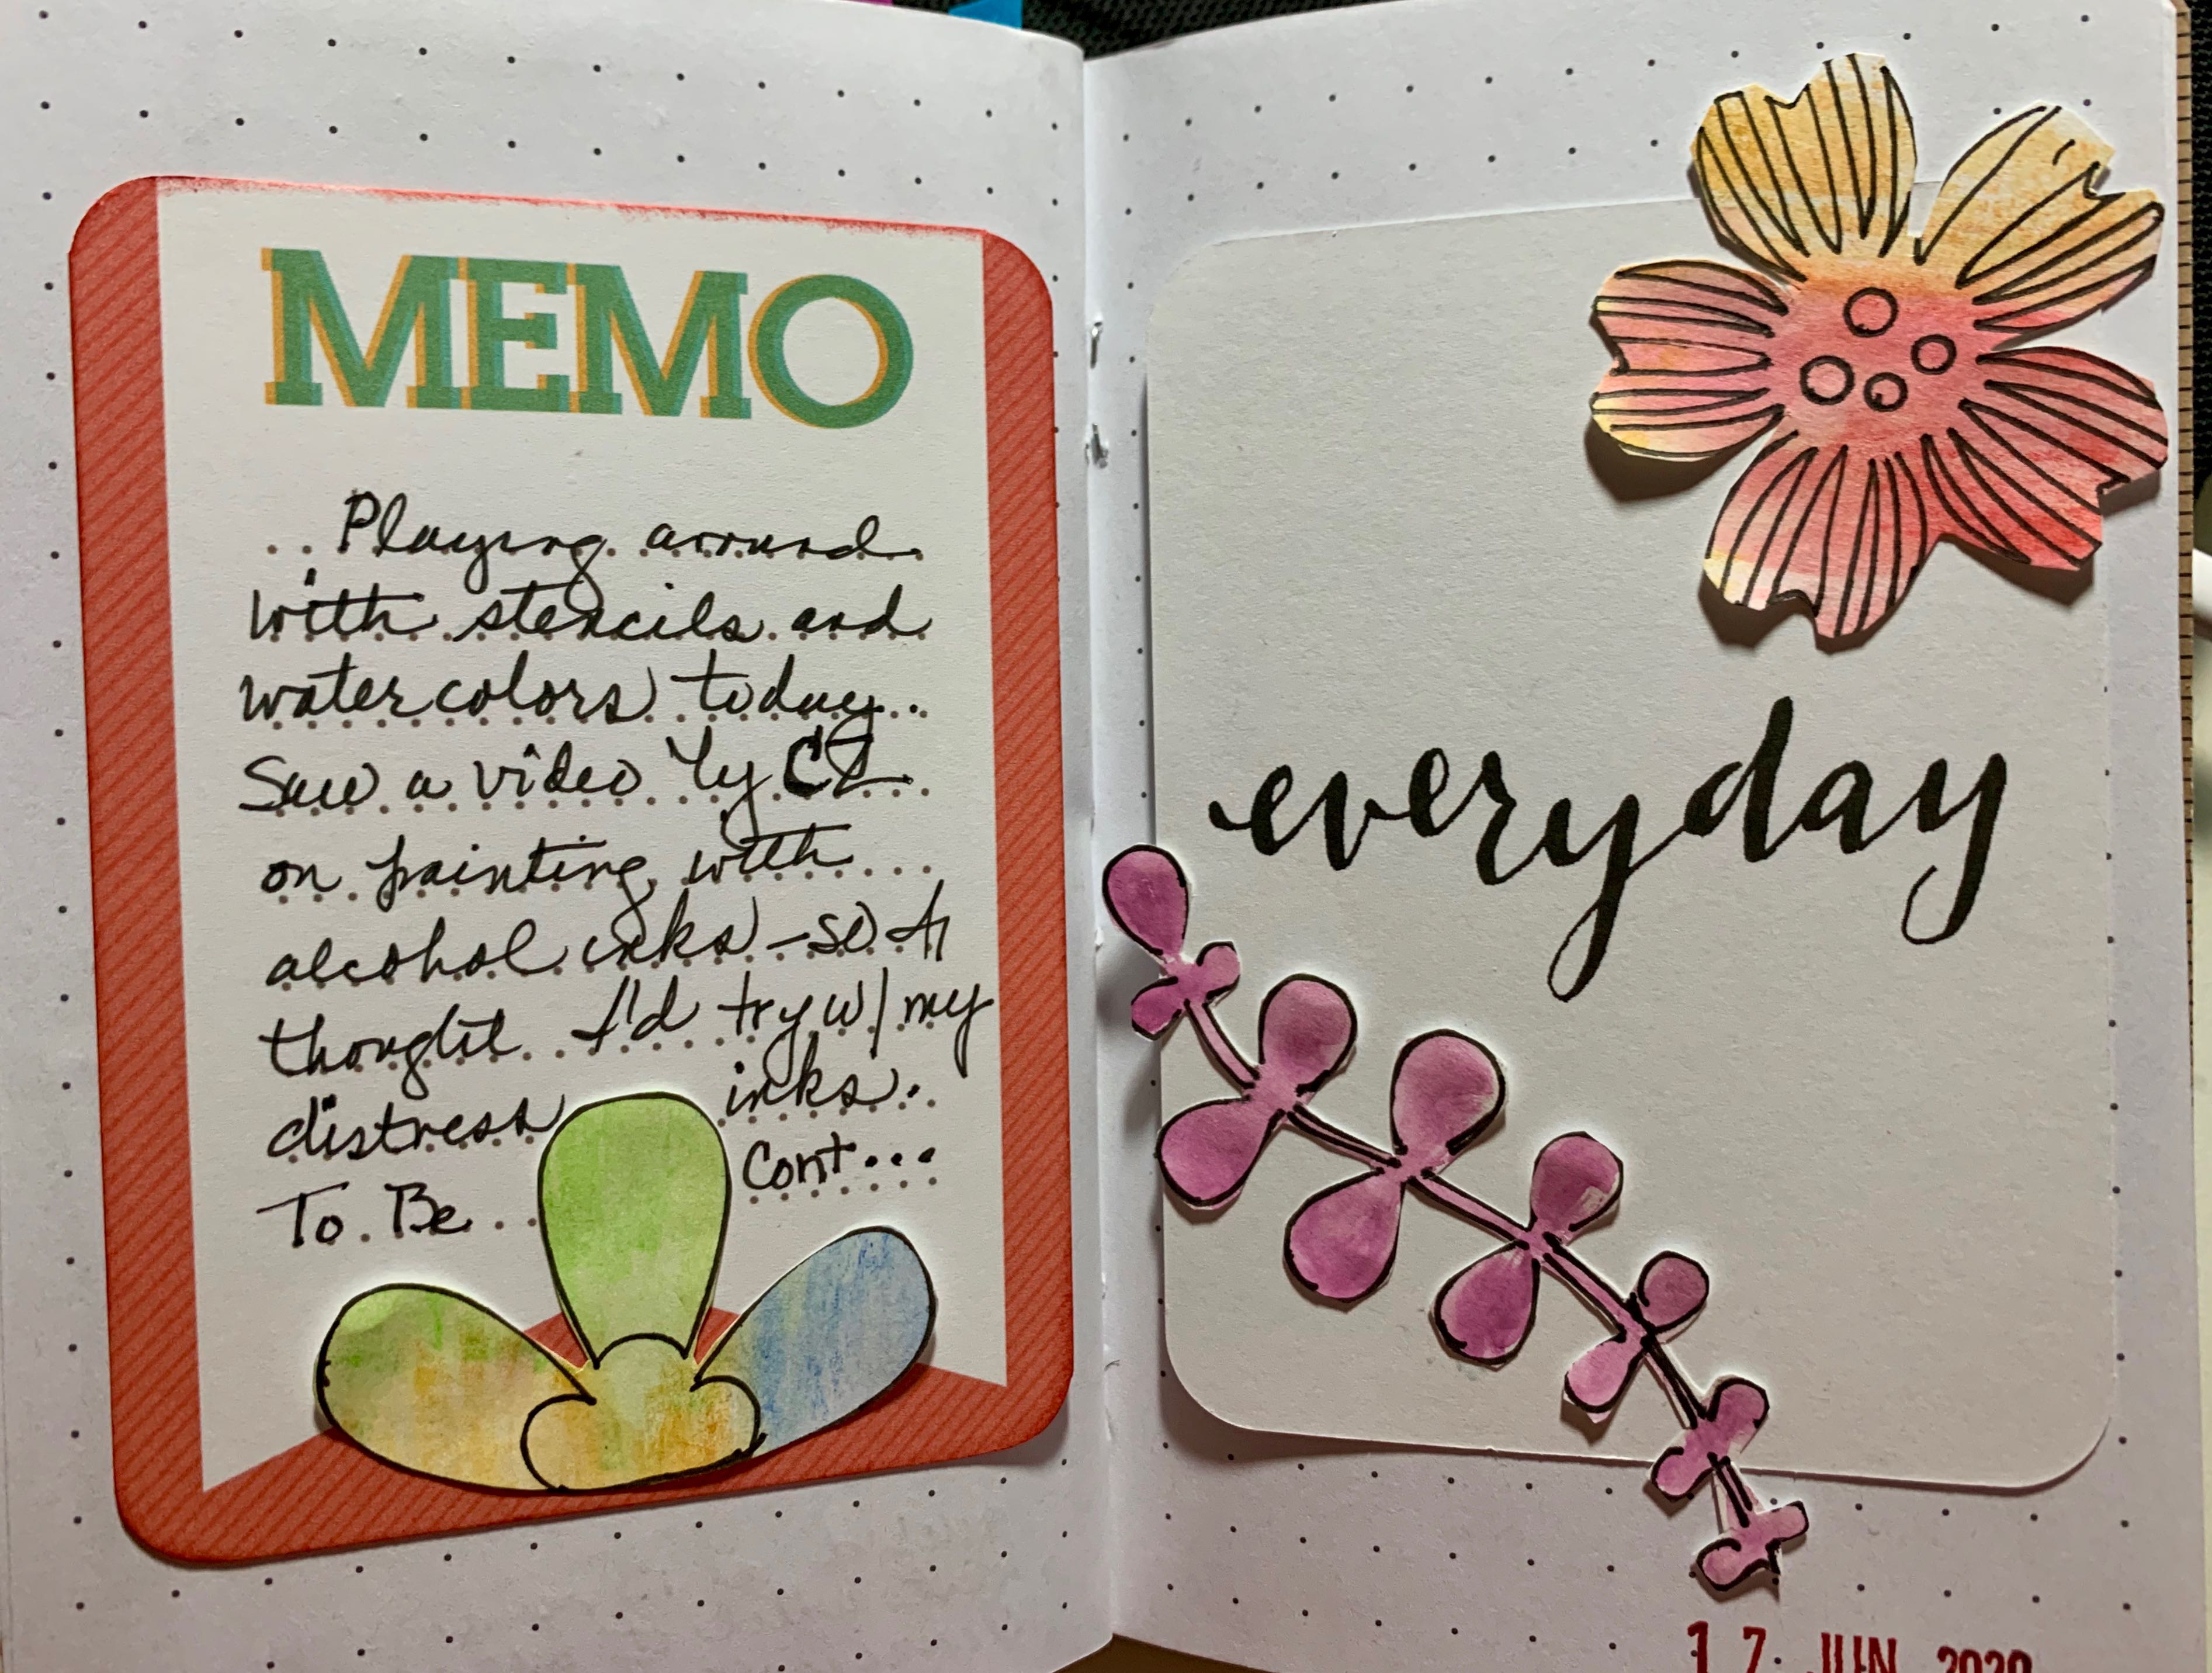 MEMO
Playing around
with stencils and
watercolors today
Saw a video by CZ
on painting with
alcohol inks - so I
thought I'd try w/ my
distress inks.
To Be Cont...
everyday
17 JUN 2020